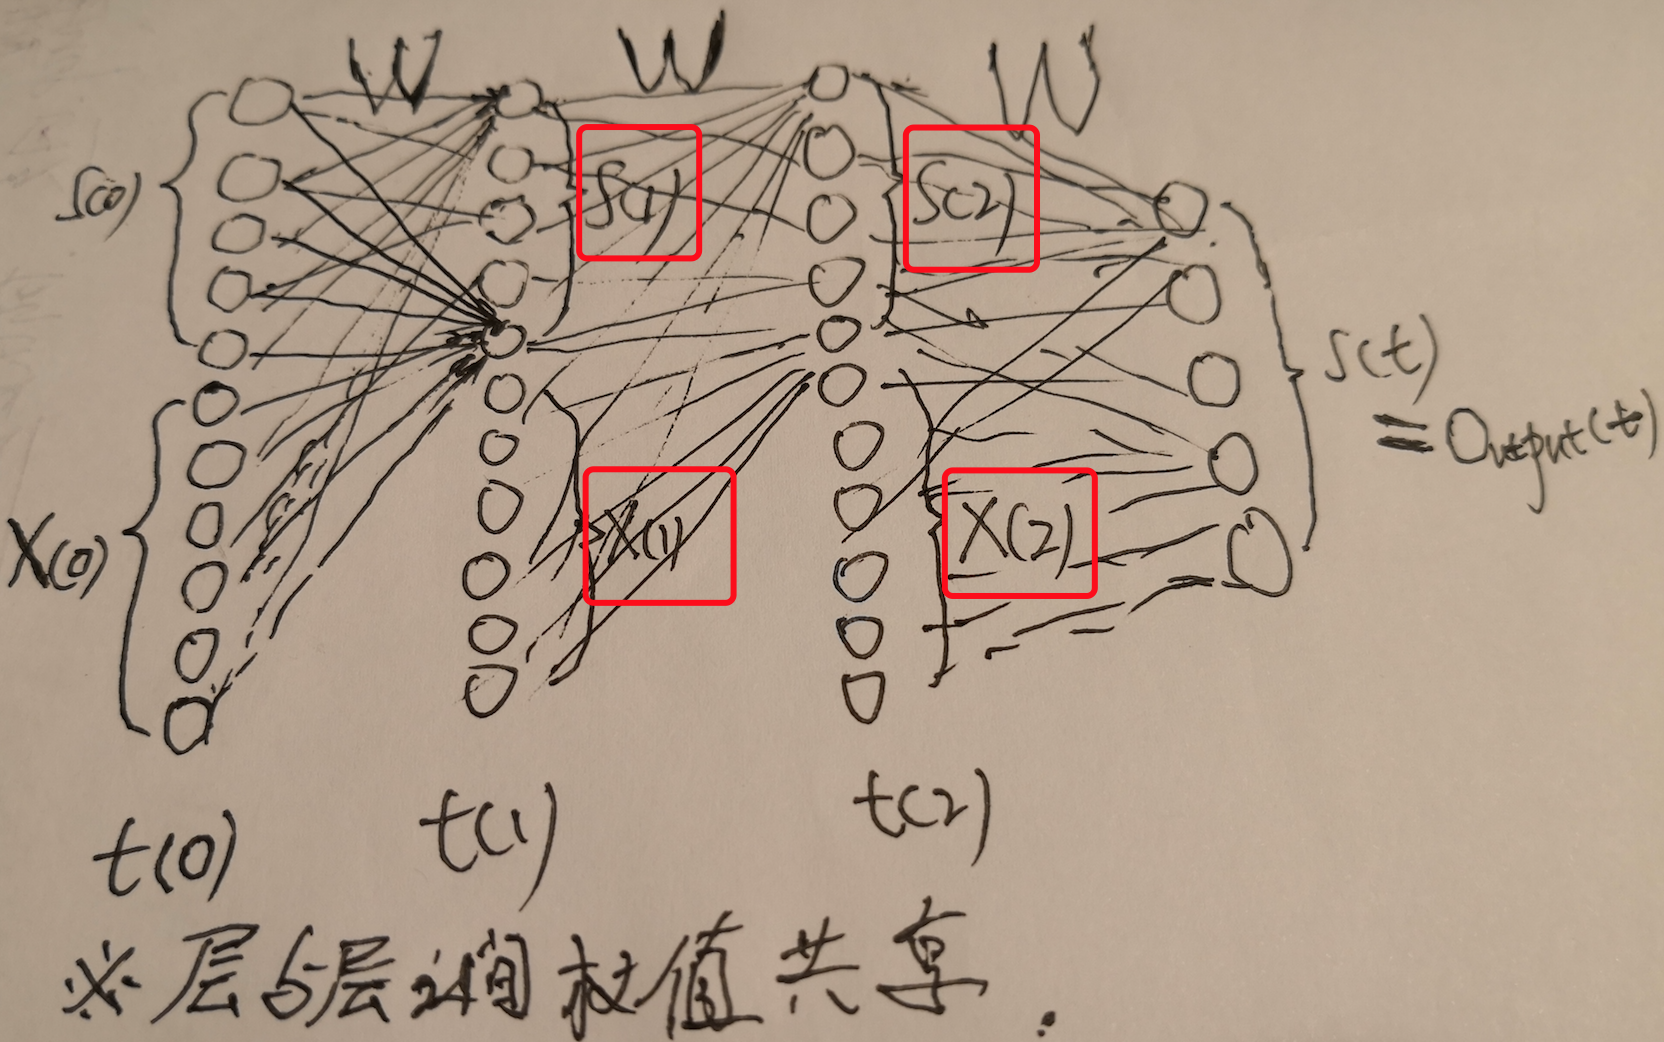 W W W
S(0) S(1) S(2)
S(t)
= Output(t)
X(0) X(1) X(2)
t(0) t(1) t(2)
※层与层之间权值共享.